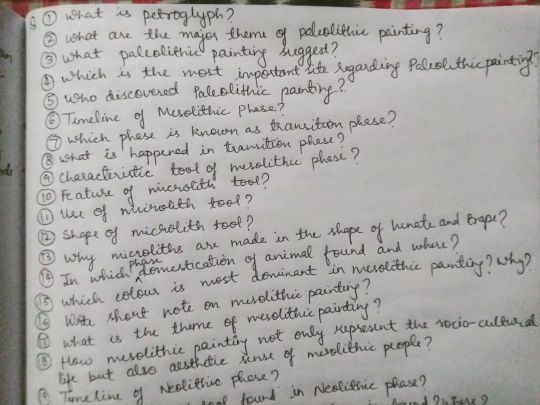 ① What is petroglyph?
② What are the major theme of paleolithic painting?
③ What paleolithic painting suggest?
④ Which is the most important site regarding Paleolithic painting?
⑤ Who discovered Paleolithic painting?
⑥ Timeline of Mesolithic Phase?
⑦ Which phase is known as transition phase?
⑧ What is happened in transition phase?
⑨ Characteristic tool of mesolithic phase?
⑩ Feature of microlith tool?
⑪ Use of microlith tool?
⑫ Shape of microlith tool?
⑬ Why microliths are made in the shape of lunate and Trape?
⑭ In which phase domestication of animal found and where?
⑮ Which colour is most dominant in mesolithic painting? Why?
⑯ Write short note on mesolithic painting?
⑰ What is the theme of mesolithic painting?
⑱ How mesolithic painting not only represent the socio-cultural
life but also aesthetic sense of mesolithic people?
Timeline of Neolithic Phase?
found in Neolithic phase?